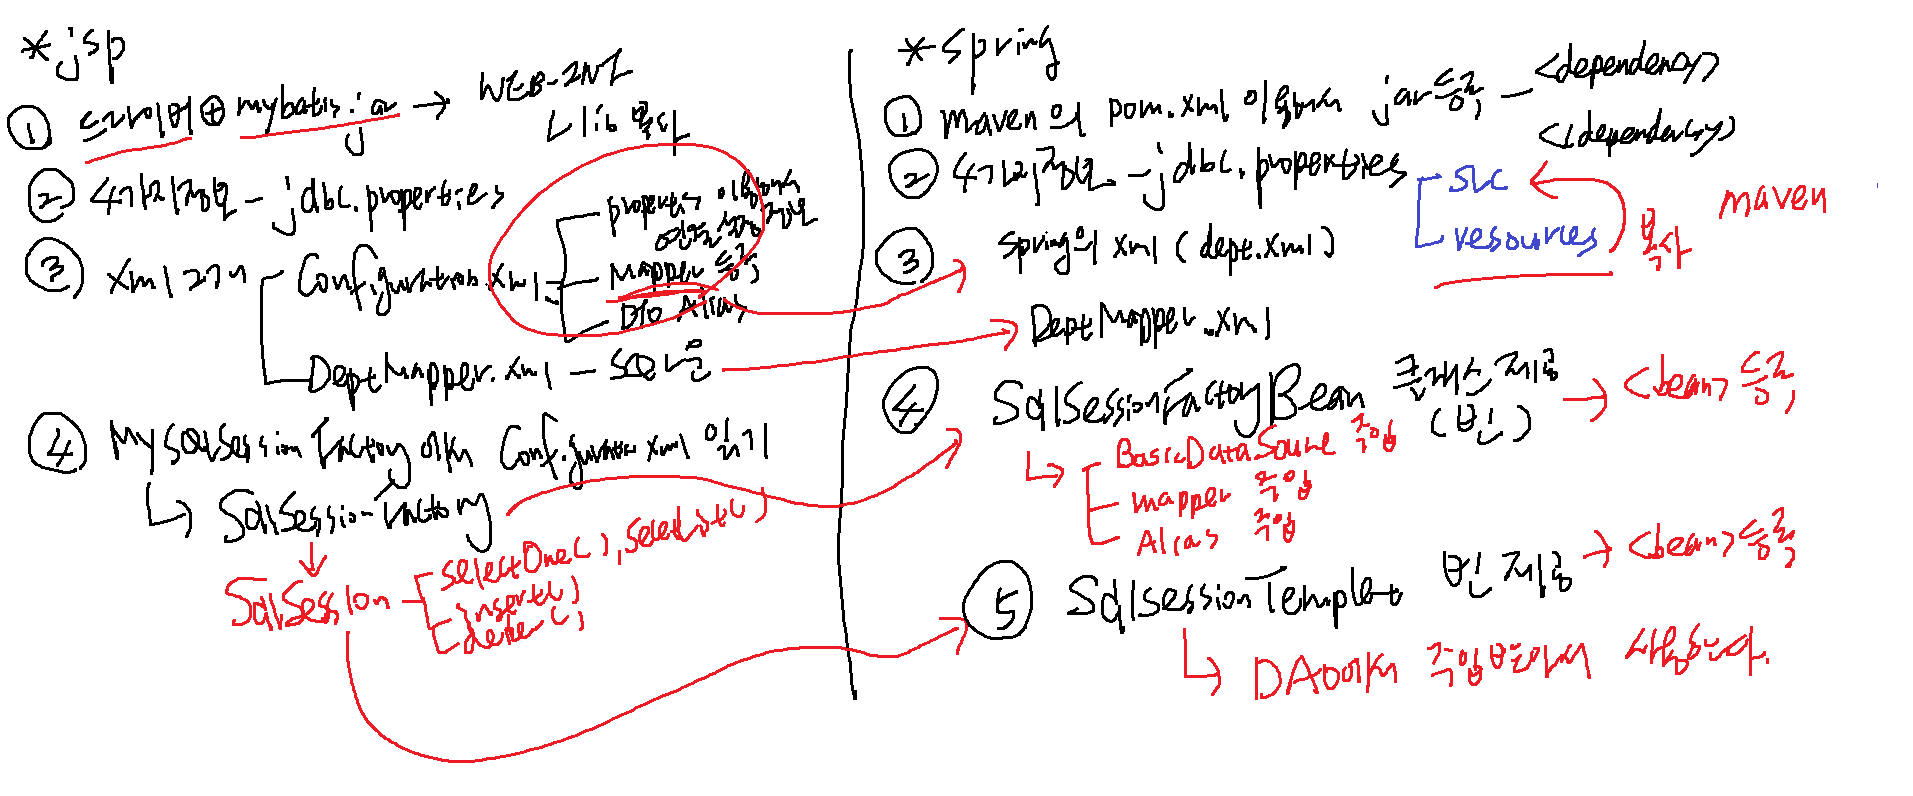 *jsp
① 드라이버 + mybatis.jar → WEB-INF
ㄴlib 복사
② 4가지정보 - jdbc.properties
③ xml 2개
Configuration.xml
properties 이용해서
연결설정정보
Mapper 등록
DTO Alias
DeptMapper.xml - SQL문
④ MySqlSessionFactory에서 Configuration.xml 읽기
SqlSessionFactory
SqlSession
selectOne(), selectList()
insert()
delete()
*spring
① maven의 pom.xml 이용해서 jar등록 - <dependency>
</dependency>
② 4가지정보 - jdbc.properties
src
resources
복사
maven
③ spring의 xml (dept.xml)
DeptMapper.xml
④ SqlSessionFactoryBean 클래스 제공 → <bean> 등록
(빈)
BasicDataSource 주입
mapper 주입
Alias 주입
⑤ SqlSessionTemplet 빈 제공 → <bean> 등록
DAO에서 주입받아서 사용한다.